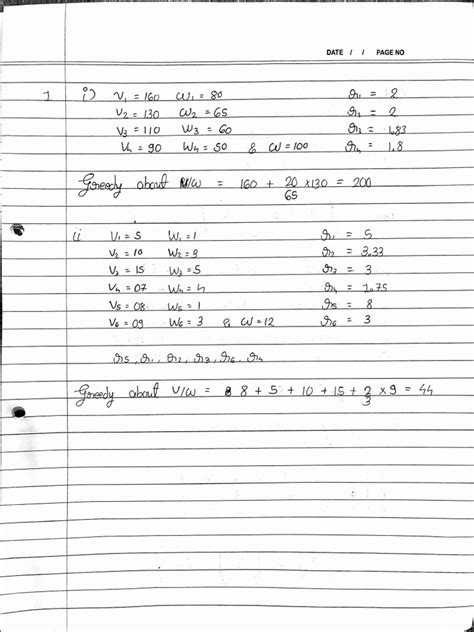 DATE / / PAGE NO
1 i) V₁ = 160 W₁ = 80 r₁ = 2
V₂ = 130 W₂ = 65 r₂ = 2
V₃ = 110 W₃ = 60 r₃ = 1.83
V₄ = 90 W₄ = 50 & W = 100 r₄ = 1.8
Greedy about V/W = 160 + 20/65 × 130 = 200
ii V₁ = 5 W₁ = 1 r₁ = 5
V₂ = 10 W₂ = 3 r₂ = 3.33
V₃ = 15 W₃ = 5 r₃ = 3
V₄ = 07 W₄ = 4 r₄ = 1.75
V₅ = 08 W₅ = 1 r₅ = 8
V₆ = 09 W₆ = 3 & W = 12 r₆ = 3
r₅, r₁, r₂, r₃, r₆, r₄
Greedy about V/W = 8 + 5 + 10 + 15 + 2/3 × 9 = 44